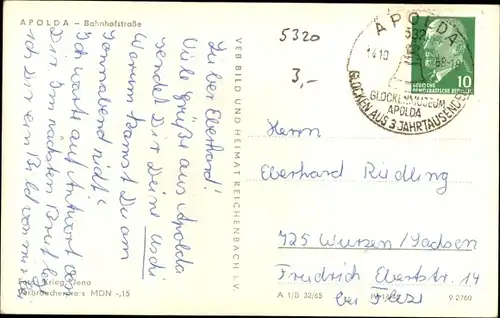 APOLDA – Bahnhofstraße
Lieber Eberhard!
Viele Grüße aus Apolda
sendet Dir Deine Uschi
Warum kamst Du am
Sonnabend nicht?
Ich warte auf Antwort von
Dir. Im nächsten Brief lege
ich Dir ein Bild von mir bei
Foto: Krieg, Jena
Verbraucherpreis MDN -,15
VEB BILD UND HEIMAT REICHENBACH I. V.
5320
3,-
APOLDA
532
14.10
GLOCKENMUSEUM
APOLDA
GLOCKEN AUS 3 JAHRTAUSENDEN
10
DEUTSCHE
DEMOKRATISCHE REPUBLIK
Herrn
Eberhard Riedling
725 Wurzen/Sachsen
Friedrich Ebertstr. 14
bei
A 1/B 32/65
9 2760